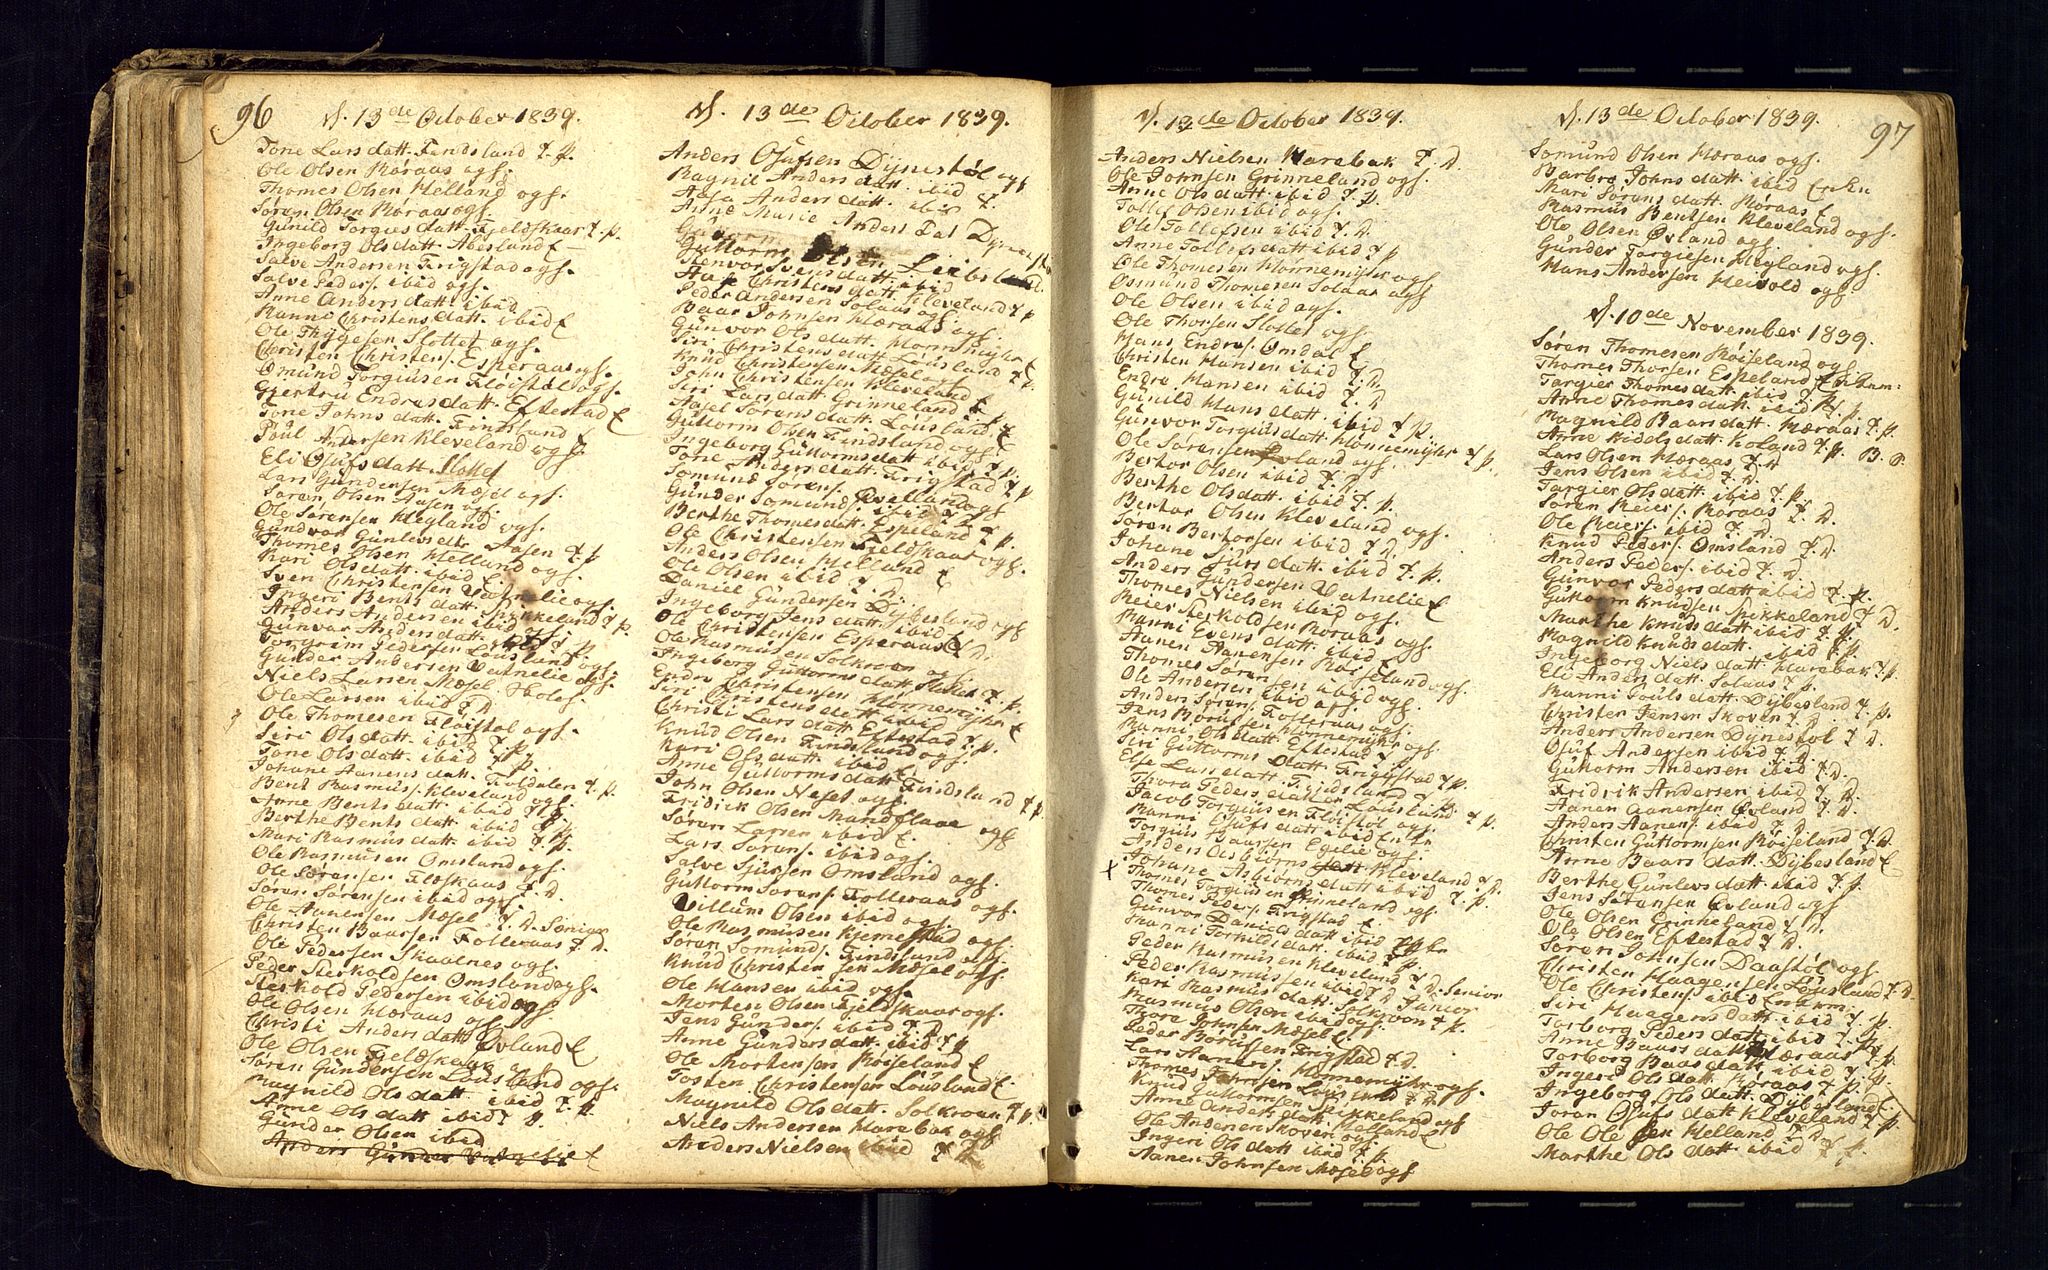 96
d. 13de October 1839.
Tone Lars datt. Findsland T. p.
Ole Olsen Røraas ogf.
Thomes Olsen Helland ogf.
Søren Olsen Røraas ogf.
Gunild Torgus datt. Fjeldskaar T. p.
Ingeborg Ols datt. Abesland E
Salve Andersen Frigstad ogf.
Salve Peders. ibid ogf.
Anne Anders datt. ibid
Ranni Christens datt. ibid E
Ole Thygesen Slottet ogf.
Christen Christens. Esperaas ogf.
Omund Torgiusen Fløistøl ogf.
Gjertru Endres datt. Eftestad E
Tone Johns datt. Findsland E
Poul Andersen Kleveland ogf.
Eli Olufs datt. Slottet
Lars Gundersen Mæsel ogf.
Søren Olsen Aasen ogf.
Ole Sørensen Hegland ogf.
Gundvor Gunlevs dtt. Aasen T. p
Thomes Olsen Helland ogf.
Kari Ols datt. ibid E
Sven Christensen Vatnelie ogf.
Ingeri Bents datt. Spikkeland T. p.
Anders Andersen ibid
Gunvor Anders datt. ibid T. p
Torgrim Pedersen Lousland ogf.
Gunder Andersen Vatnelie ogf.
Niels Larsen Mæsel Skolef.
Ole Larsen ibid T. D.
Ole Thomesen Fløistøl ogf.
Siri Ols datt. ibid T. p.
Tone Ols datt. ibid T. p.
Johane Aanens datt. Foldalen T. p.
Bent Rasmus. Kleveland ogf.
Anne Bents datt. ibid T. p.
Berthe Bents datt. ibid T. p.
Mari Rasmus datt. ibid T. p.
Ole Rasmusen Omsland ogf.
Ole Sørensen Fleskaas T. D.
Søren Sørensen ibid ogf.
Ole Aanensen Mæsel T. D. Senior
Christen Baarsen Folleraas T. D.
Ole Pedersen Skaalnes ogf.
Peder Reskoldsen Omsland ogf.
Reskold Pedersen ibid ogf.
Ole Olsen Høraas ogf.
Christi Anders datt. Øvland E
Ole Olsen Fjeldskaar ogf.
Søren Gundersen Lousland ogf.
Magnild Ols datt. ibid T. p.
Anne Ols datt. ibid T. p.
Gunder Olsen ibid
Anders Gunder Vatnelie E
d. 13de October 1839.
Anders Olufsen Dynestøl ogf
Ragnil Anders datt. ibid T.
Aasa Anders datt. ibid
Anne Marie Anders Dat Dynestøl
Guttorm Olsen Leibsland.
Stenvor Svens datt. ibid
Christens datt. Kleveland T. p
Peder Andersen Solaas ogf.
Baar Johnsen Høraas ogf.
Gunvor Ols datt. Honnemyhr E
Siri Christens datt. Lousland T. p.
Knud Christensen Mæsel ogf
John Christensen Kleveland
Siri Lars datt. Grinneland E
Aasel Sørens datt. Lousland T.
Guttorm Olsen Findsland ogf.
Ingeborg Guttorms datt. ibid T. p.
Tone Anders datt. Frigstad T. p
Somund Sørens. Qvelland ogf
Gunder Somunds. ibid T. D
Berthe Thomes datt. Espeland T. p.
Ole Christensen Fjeldskaar ogf.
Anders Olsen Helland E
Ole Olsen ibid T. D.
Daniel Gundersen Dybesland ogf
Ingeborg Jens datt. ibid E
Ole Christensen Esperaas T. D.
Ole Rasmusen Solkroon ogf.
Ingeborg Guttorms datt. Slottet T. p.
Endre Christensen Honnemyhr E
Siri Christens datt. ibid E
Christi Lars datt. Eftestad T. p.
Knud Olsen Findsland ogf.
Kari Ols datt. ibid E
Anne Guttorms datt. Findsland T. p
John Olsen Neset ogf.
Fridick Olsen Mandflaae ogf
Søren Larsen ibid E.
Lars Sørens. ibid ogf.
Salve Sjursen Omsland ogf.
Guttorm Sørens. Folleraas ogf.
Villum Olsen ibid ogf.
Ole Rasmusen Kjemestad ogf.
Søren Somunds. Findsland ogf.
Knud Christensen Mæsel ogf.
Ole Hansen ibid ogf.
Morten Olsen Fjeldskaar ogf.
Jens Gunders. ibid T. D
Anne Gunders datt. ibid T. p
Ole Mortensen Røiseland E
Tosten Christensen Lousland E.
Magnild Ols datt. Solkroon T. p
Niels Andersen Harebak ogf
Anders Nielsen ibid T.
d. 13de October 1839.
Anders Nielsen Harebak T. D.
Ole Johnsen Grinneland ogf.
Anne Ols datt. ibid T. p.
Tollef Olsen ibid ogf.
Ole Tollefsen ibid T. D.
Anne Tollefs datt ibid T. p
Ole Thomesen Honnemyhr ogf
Osmund Thomesen Solaas ogf
Ole Olsen ibid ogf.
Ole Thorsen Slottet ogf.
Hans Endres. Omdal E
Christen Hansen ibid E
Endre Hansen ibid T. D.
Gunild Hans datt. ibid T. D.
Gunvor Torgius datt. Honnemyhr T. p.
Ole Sørensen Øvland ogf.
Bertor Olsen ibid T. D.
Berthe Ols datt. ibid T. p.
Bertor Olsen Kleveland ogf.
Søren Bertorsen ibid T. D.
Johane Sjurs datt. ibid T. p.
Anders Gundersen Vatnelie E
Thomes Nielsen ibid ogf.
Reier Reskoldsen Røraas ogf.
Ranni Evens datt. ibid E
Aanen Aanensen Røiseland ogf.
Thomes Sørensen ibid ogf.
Ole Andersen ibid ogf.
Anders Sørens. Folleraas ogf.
Jens Børusen Honnemyhr ogf
Ranni Ols datt. Eftestad T. p.
Siri Guttorms Datt Frigstad T. p
Else Lars datt. Findsland T. p.
Thora Peders datter Lousland T. p.
Jacob Torgiusen Fløistøl ogf.
Ranni Olufs datt ibid Enke
Torgius Baarsen Egelie ogf.
Anders Asbiørns datt. Kleveland T. D.
Johane Asbiørns datt ibid T. p.
Thomes Torgiusen Grinneland ogf.
Thomes Peders. Frigstad E
Gunvor Daniels datt ibid T. p
Ranni Torkilds datt. ibid T. p.
Peder Rasmusen Kleveland T. D. Senior
Peder Rasmussen ibid T. D Junior
Kari Rasmus datt. Solkroon T. p.
Rasmus Olsen ibid ogf.
Thore Johnsen Mæsel E.
Peder Børufsen Frigstad T. D.
Lars Aanens. Honnemyhr ogf.
Thomes Tørrisen Lousland T. D.
Knud Guttormsen Spikkeland ogf
Anne Anders datt. Helland E
Ole Andersen Skoven ogf.
Ingeri Ols datt. ibid T. p.
Aanen Johnsen Mæsel ogf
97
d. 13de October 1839.
Somund Olsen Høraas ogf.
Barbro Johns datt. ibid Enken
Mari Sørens datt. Røraas E
Rasmus Bentsen Kleveland ogf.
Ole Olsen Øvland ogf.
Gunder Torgiesen Hegland ogf.
Hans Andersen Heivold ogf.
d. 10de November 1839.
Søren Thomesen Røiseland ogf.
Thomes Thorsen Espeland E
Torgier Thomes datt. ibid T. p.
Anne Thomes datt. ibid T. p.
Magnild Baars datt. Høraas T. p.
Anne Kidels datt. Koland T. p. B. S.
Lars Olsen Høraas T. D
Jens Olsen ibid T. D.
Torgier Ols datt. ibid T. p.
Søren Reiers. Røraas T. D.
Ole Reiers. ibid T. D.
Knud Peders. Omsland T. D.
Anders Peders. ibid T. D.
Gunvor Peders datt ibid T. p.
Guttorm Knudsen Spikkeland T. D.
Marthe Knuds datt ibid T. p.
Magnild Knuds datt. ibid T. p.
Ingeborg Niels datt. Harebak T. p
Eli Anders datt. Solaas T. p.
Ranni Pouls datt. Dybesland T. p.
Christen Jensen Skoven T. D.
Anders Andersen Dynestøl T. D.
Oluf Andersen ibid T. D.
Guttorm Andersen ibid T. D.
Fridrik Andersen ibid T. D.
Aanen Aanensen Øvland T. D.
Anders Aanens. ibid T. D.
Christen Guttormsen Røiseland T. D.
Anne Baars datt. Dybesland E
Berthe Gunlevs datt. ibid T. p.
Jens Sørensen Øvland ogf.
Ole Olsen Grinneland T. D.
Ole Olsen Eftestad T. D.
Søren Johnsen Daastøl ogf.
Christen Haagensen Lousland T. D.
Ole Christens. ibid Enkem.
Siri Haagens Datt ibid T. p.
Torborg Peders datt. ibid T. p.
Anne Baars datt. Høraas T. p.
Torborg Baars datt. ibid T. p.
Ingeri Ols datt. Røraas T. p.
Ingeborg Ols datt. Dybesland E
Joran Olufs datt. Kleveland T. p
Ole Olesen Helland T. D.
Marthe Ols datt. ibid T. p.